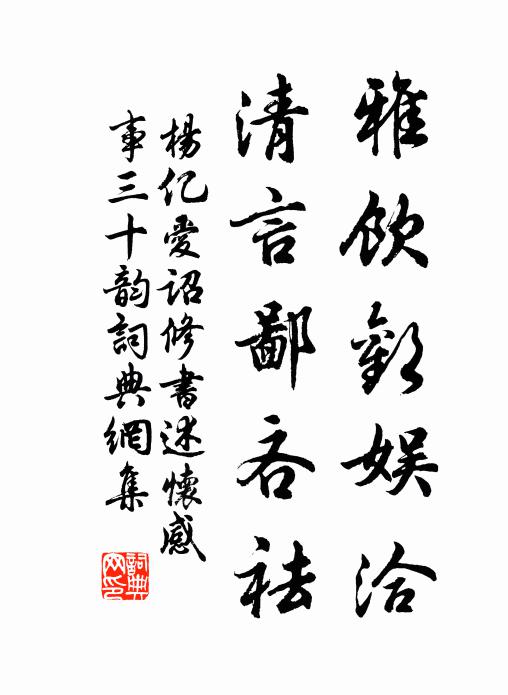 雅飲歡娛洽
清言鄙吝祛
楊亿愛詔修書述懷感
事三十韵詞典網集
詞典
网印